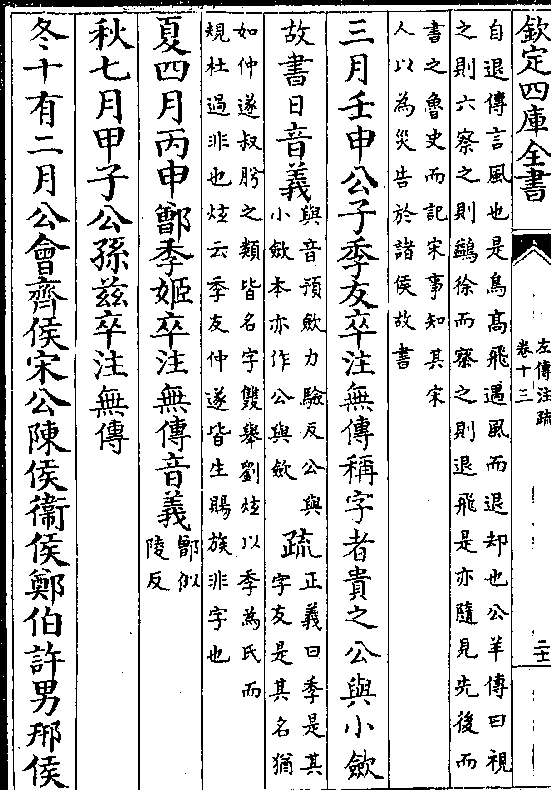 欽定四庫全書
左傳注疏
卷十三
自退傳言風也是鳥高飛遇風而退却也公羊傳曰視
之則六察之則鷁徐而察之則退飛是亦隨見先後而
書之魯史而記宋事知其宋
人以為災告於諸侯故書
三月壬申公子季友卒注無傳稱字者貴之公與小歛
故書日音義
與音預歛力驗反公與
小歛本亦作公與歛
疏
正義曰季是其
字友是其名猶
如仲遂叔肹之類皆名字雙舉劉炫以季為氏而
規杜過非也炫云季友仲遂皆生賜族非字也
夏四月丙申鄫季姬卒注無傳音義
鄫似
陵反
秋七月甲子公孫兹卒注無傳
冬十有二月公會齊侯宋公陳侯衞侯鄭伯許男邢侯